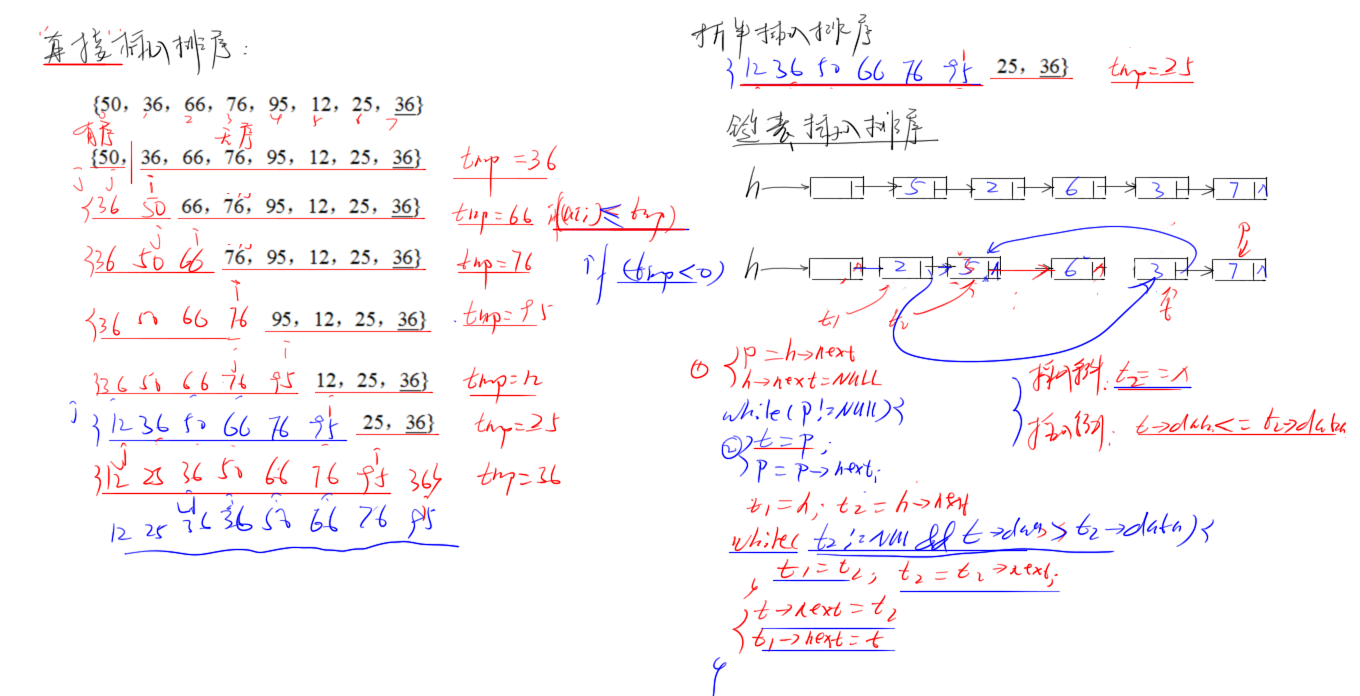 直接插入排序:
{50, 36, 66, 76, 95, 12, 25, 36}
0 1 2 3 4 5 6 7
有序 无序
{50, 36, 66, 76, 95, 12, 25, 36} tmp = 36
j j i
{36 50 66, 76, 95, 12, 25, 36} tmp=66 if(a[j] ≤ tmp)
j i
{36 50 66 76, 95, 12, 25, 36} tmp=76 if (tmp<0)
i
{36 50 66 76 95, 12, 25, 36} tmp=95
i
{36 50 66 76 95 12, 25, 36} tmp=12
j
{12 36 50 66 76 95 25, 36} tmp=25
j i
{12 25 36 50 66 76 95 36} tmp=36
12 25 36 36 50 66 76 95
折半插入排序
{12 36 50 66 76 95 25, 36} tmp=25
链表插入排序
h 5 2 6 3 7 ∧
p
h 2 5 6 3 7 ∧
t1 t2 t
① {p = h→next
h→next=NULL
while(p!=NULL){
② {t = p;
p = p→next;
t1 = h; t2 = h→next
while( t2 != NULL && t→data > t2→data){
t1 = t2; t2 = t2→next;
}
{t→next = t2
t1→next = t
}
插入条件: t2 == ∧
t→data <= t2→data